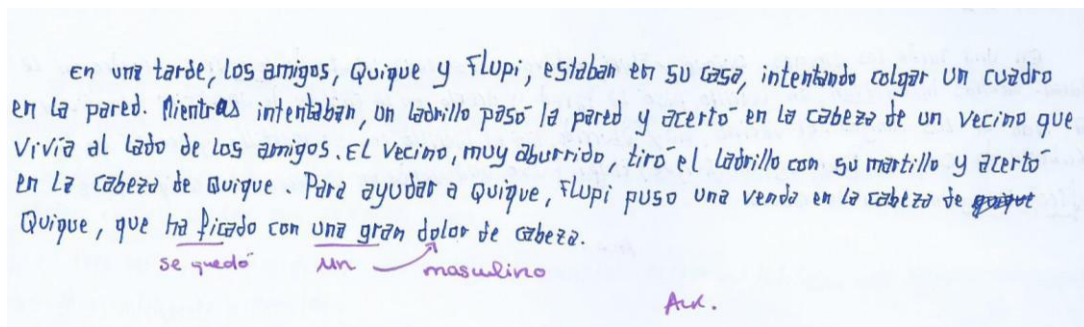 En una tarde, los amigos, Quique y Flupi, estaban en su casa, intentando colgar un cuadro
en la pared. Mientras intentaban, un ladrillo pasó la pared y acertó en la cabeza de un vecino que
vivía al lado de los amigos. El vecino, muy aburrido, tiró el ladrillo con su martillo y acertó
en la cabeza de Quique. Para ayudar a Quique, Flupi puso una venda en la cabeza de
Quique, que ha ficado con una gran dolor de cabeza.
se quedó un masculino